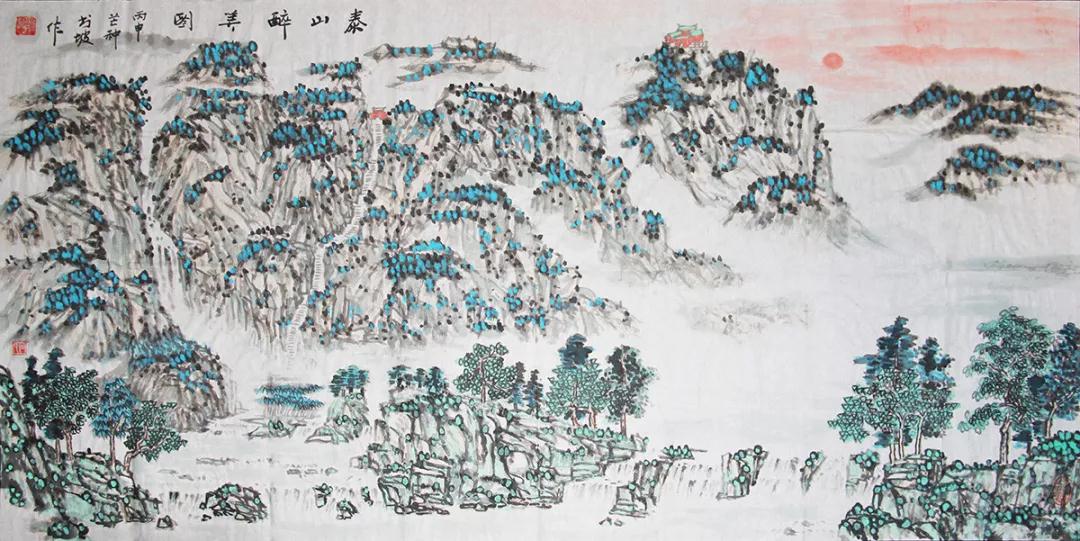 泰山醉美图
丙申
芒种
坡
作